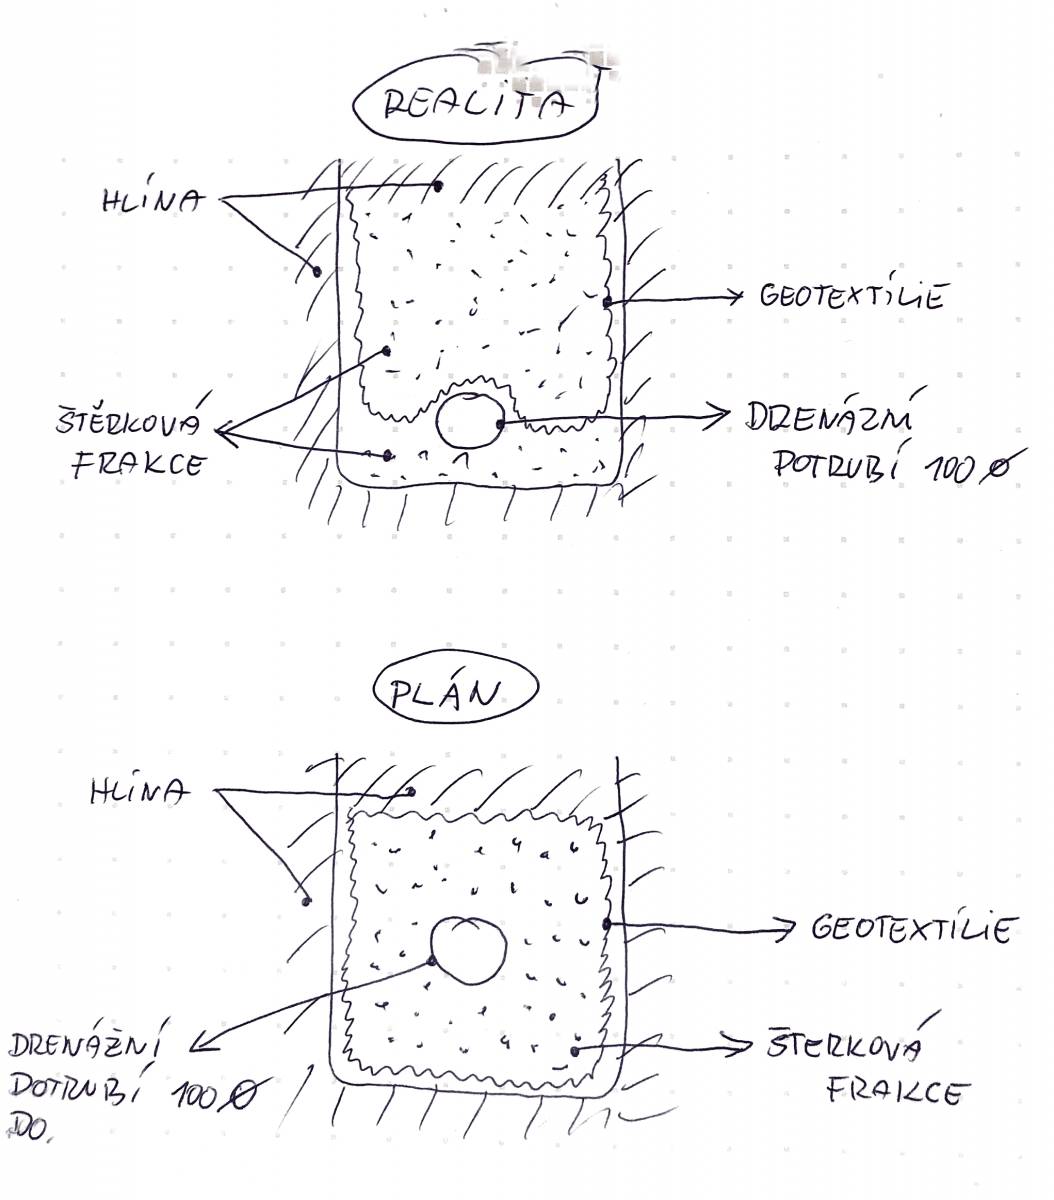 REALITA
HLÍNA
GEOTEXTÍLIE
ŠTĚRKOVÁ
FRAKCE
DRENÁZNÍ
POTRUBÍ 100 Ø
PLÁN
HLÍNA
GEOTEXTÍLIE
DRENÁŽNÍ
POTRUBÍ 100 Ø
DO.
ŠTERKOVÁ
FRAKCE